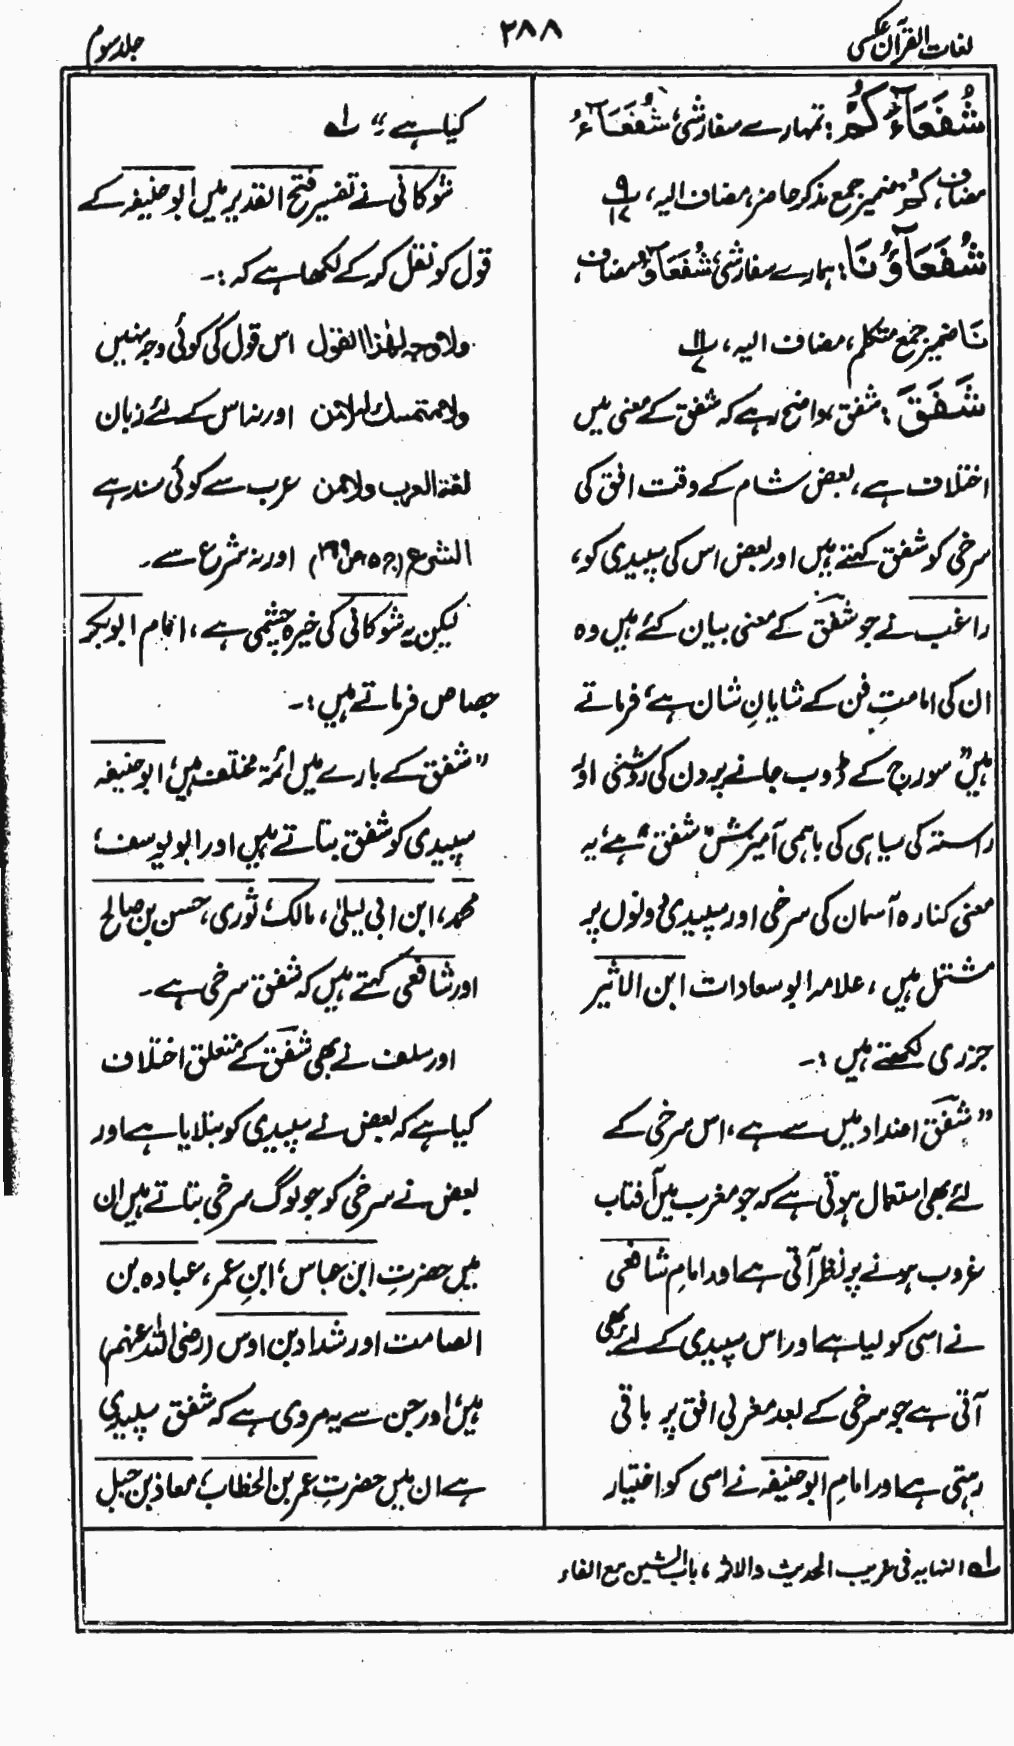 لغات القرآن عکسی
۲۸۸
جلد سوم
شُفَعَآءَکُمْ : تمہارے سفارشی، شُفَعَآءُ
مضاف، کُمْ ضمیر جمع مذکر حاضر، مضاف الیہ، پ
شُفَعَآؤُنَا : ہمارے سفارشی، شُفَعَآؤُ مضاف،
نَا ضمیر جمع متکلم، مضاف الیہ، پ
شَفَق : شفق، واضح رہے کہ شفق کے معنی میں
اختلاف ہے، بعض شام کے وقت افق کی
سرخی کو شفق کہتے ہیں اور بعض اس کی سپیدی کو،
راغب نے جو شفق کے معنی بیان کئے ہیں وہ
ان کی امامتِ فن کے شایانِ شان ہے، فرماتے
ہیں "سورج کے ڈوب جانے پر دن کی روشنی اور
راستہ کی سیاہی کی باہمی آمیزش "شفق" ہے، یہ
معنی کنارہ آسمان کی سرخی اور سپیدی دونوں پر
مشتمل ہیں، علامہ ابو سعادات ابن الاثیر
جزری لکھتے ہیں :۔
"شفق اضداد میں سے ہے، اس سرخی کے
لئے بھی استعمال ہوتی ہے کہ جو مغرب میں آفتاب
غروب ہونے پر نظر آتی ہے اور امام شافعی
نے اسی کو لیا ہے اور اس سپیدی کے لئے بھی
آتی ہے جو سرخی کے بعد مغربی افق پر باقی
رہتی ہے اور امام ابو حنیفہ نے اسی کو اختیار
کیا ہے" لے
شوکانی نے تفسیر فتح القدیر میں ابو حنیفہ کے
قول کو نقل کر کے لکھا ہے کہ :۔
ولا وجہ لھذا القول اس قول کی کوئی وجہ نہیں
ولا متمسک لہ لا من اور نہ اس کے لئے زبان
لغۃ العرب ولا من عرب سے کوئی سند ہے
الشرع (ج ۵ ص ۳۹۹) اور نہ شرع سے۔
لیکن یہ شوکانی کی خیرہ چشمی ہے، امام ابو بکر
جصاص فرماتے ہیں :۔
"شفق کے بارے میں ائمہ مختلف ہیں، ابو حنیفہ
سپیدی کو شفق بتاتے ہیں اور ابو یوسف،
محمد، ابن ابی لیلیٰ، مالک، ثوری، حسن بن صالح
اور شافعی کہتے ہیں کہ شفق سرخی ہے۔
اور سلف نے بھی شفق کے متعلق اختلاف
کیا ہے کہ بعض نے سپیدی کو بتلایا ہے اور
بعض نے سرخی کو جو لوگ سرخی بتاتے ہیں ان
میں حضرتِ ابن عباس، ابنِ عمر، عبادہ بن
الصامت اور شداد بن اوس (رضی اللہ عنہم)
ہیں، اور جن سے یہ مروی ہے کہ شفق سپیدی
ہے ان میں حضرتِ عمر بن الخطاب، معاذ بن جبل
لے النہایہ فی غریب الحدیث والاثر، باب الشین مع الفاء